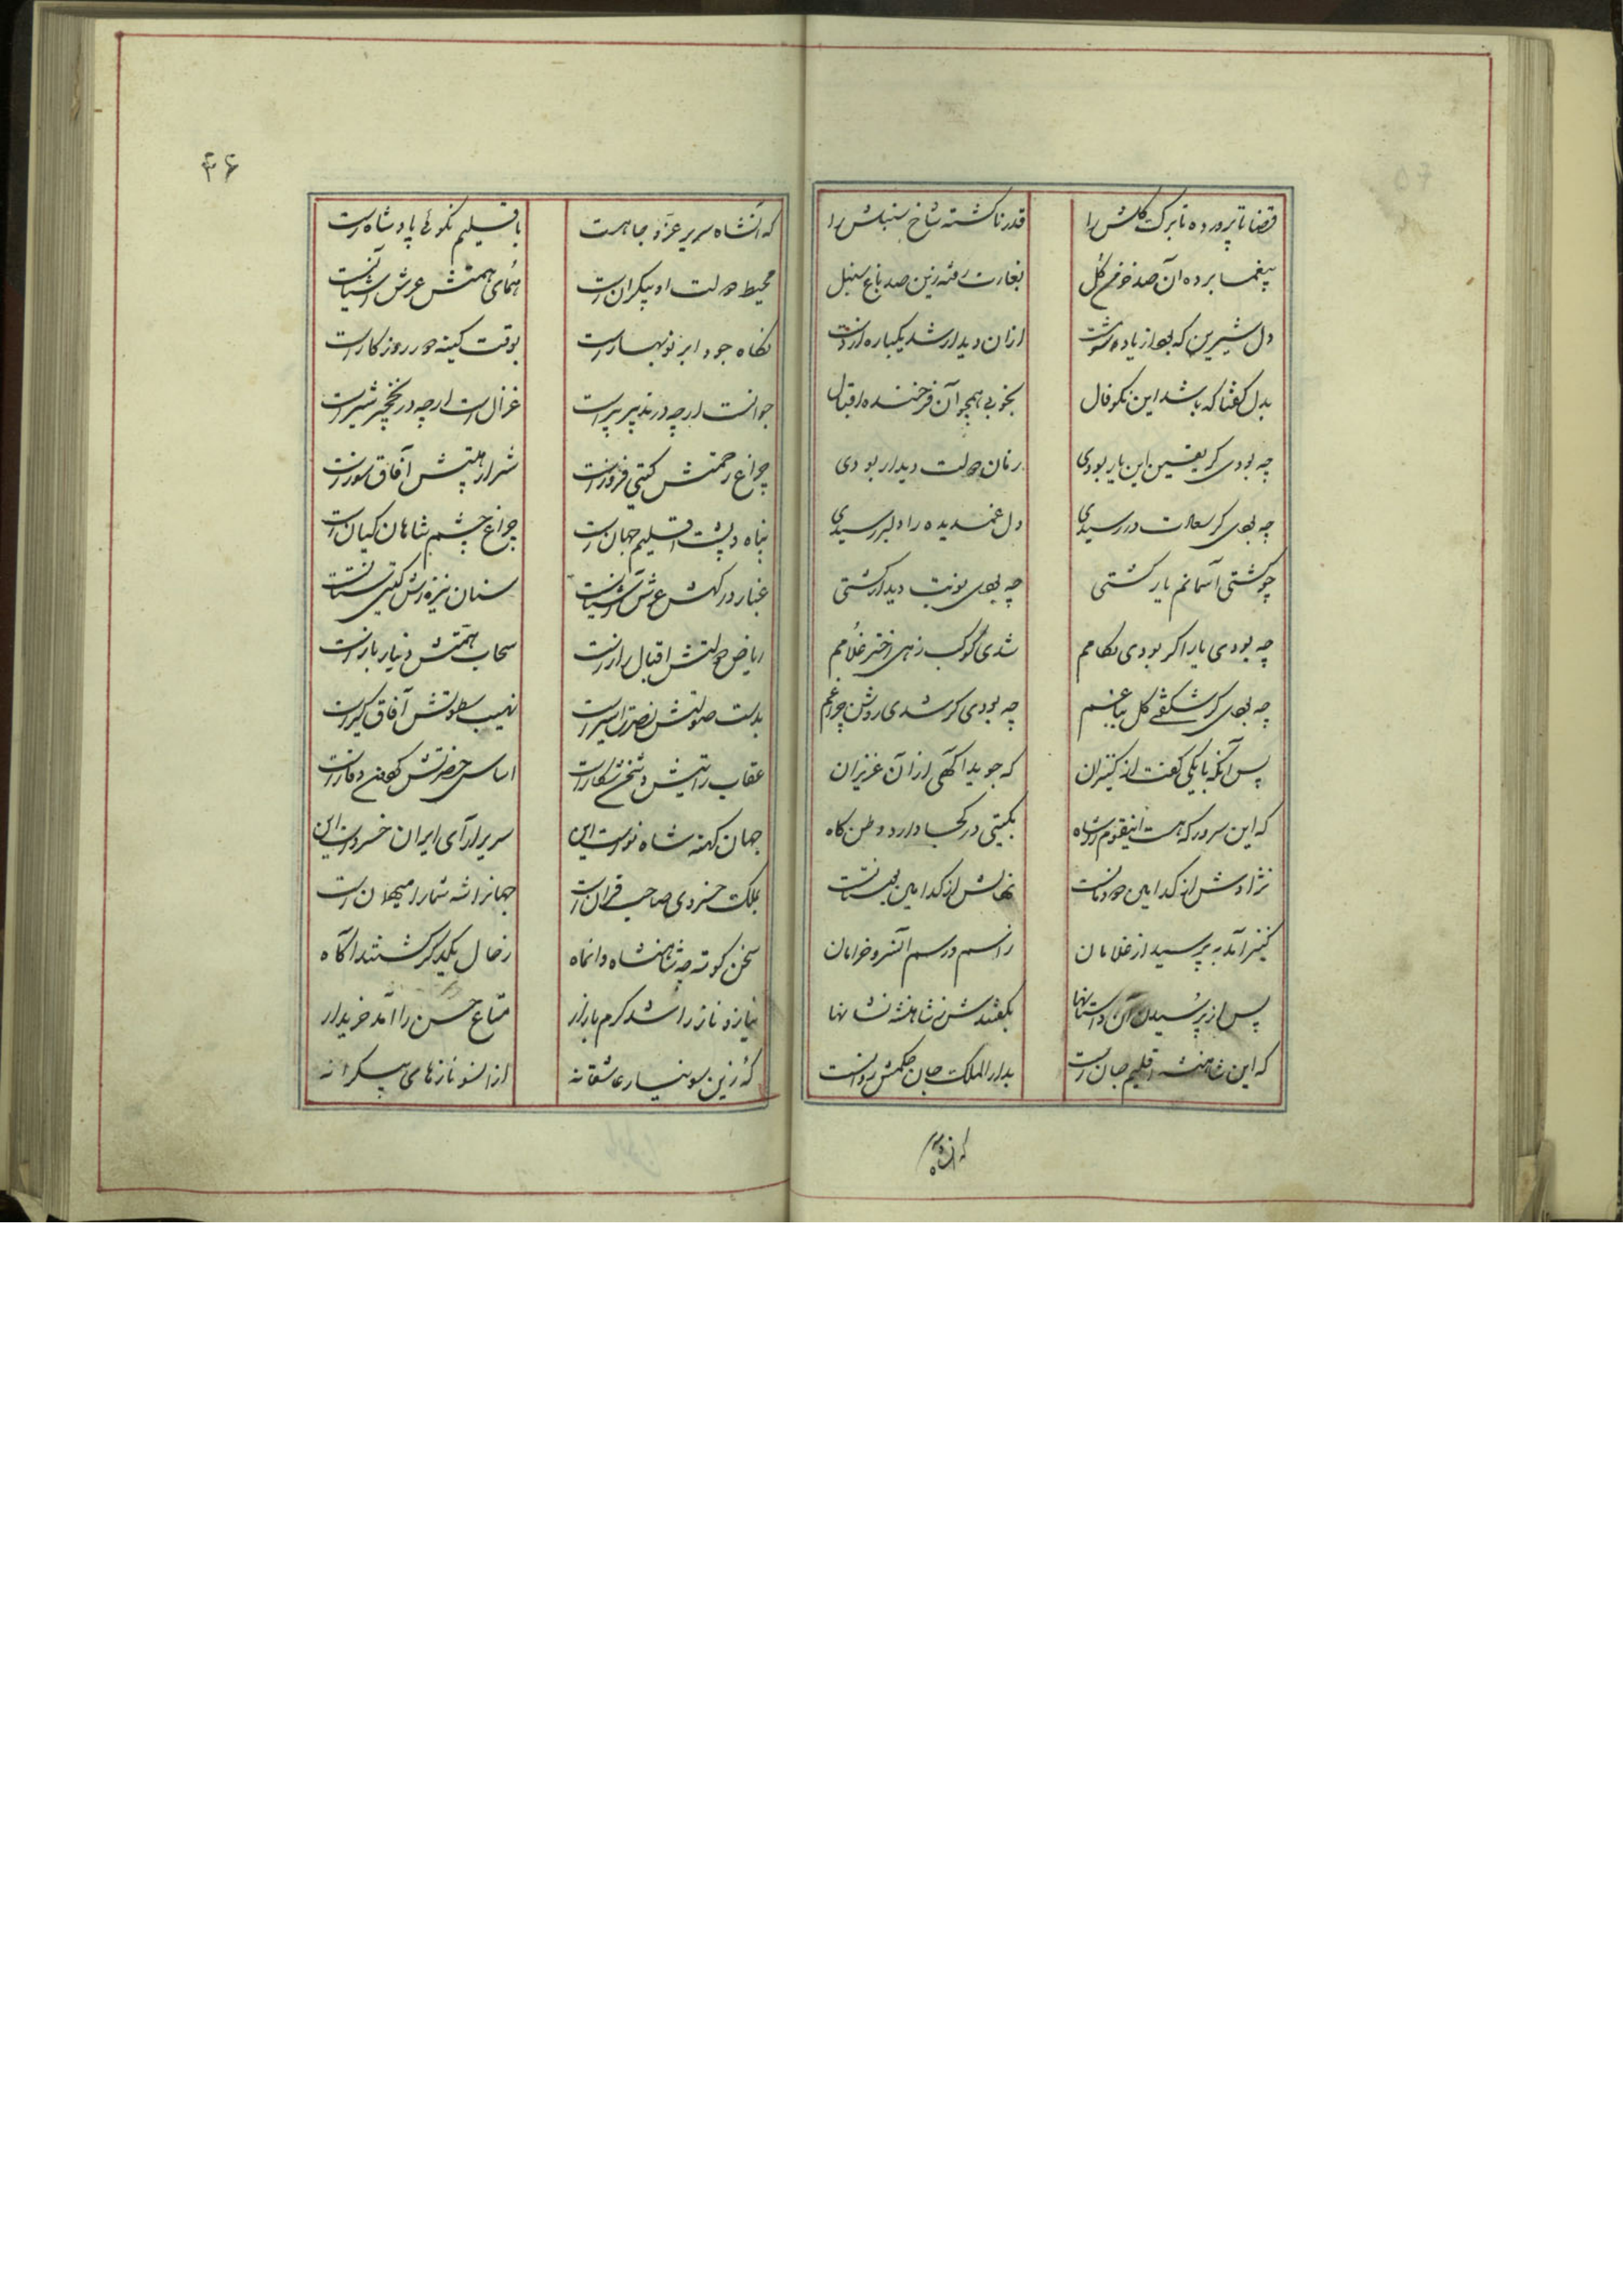 قضا تا پرورده تا برک کلش را قدر نا کشته شاخ سنبلش را
بیغما برده آن صد خرمن گل بغارت رفته زین صد باغ سنبل
دل شیرین که بود از یاده ازان دیدار شد یکباره از دست
بدل کفتا که باشد این نکو فال بخوبی همچو آن فرخنده اقبال
چه بودی کر یقین این یار بودی زمان دولت دیدار بودی
چه بودی کر سعادت در رسیدی دل غمدیده را دلبر رسیدی
چو کشتی آسمانم یار کشتی چه بودی نوبت دیدار کشتی
چه بودی یار اکر بودی بکامم شدی کوکب زهی اختر غلامم
چه بودی کر شکفتی کل بباغم چه بودی کر شدی روشن چراغم
پس آنکه با یکی کفت از کنیزان که جوید آکهی از آن عزیزان
که این سرور که هست اینقوم را شاه بکیتی در کجا دارد وطن کاه
نژادش از کدامین دودمانست نهالش از کدامین بوستانست
کنیز آمد به پرسید از غلامان ز اسم و رسم آنسرو خرامان
پس از پرسیدن آن داستانها بکفتندش ز شاهنشه نشانها
که این شاهنشه اقلیم جان است بدار الملک جان حکمش روانست
که آنشاه
۴۶
که آنشاه سریر عز و جاهست باقلیم نکوئی پادشاه است
محیط دولت او بیکران است همای همتش عرش آشیانست
بکاه جود ابر نوبهار است بوقت کینه در روزکار است
جوانست ارچه در تدبیر پیر است غزال است ارچه در نخچیر شیر است
چراغ رحمتش کیتی فروز است شرار هیبتش آفاق سوز است
پناه و پشت اقلیم جهان است چراغ چشم شاهان کیان است
غبار درکهش عرش آشیانست سنان نیزه اش کیتی ستانست
ریاض دولتش اقبال بار است سحاب همتش دینار بار است
بدست صولتش نصرت اسیر است نهیب سطوتش آفاق کیر است
عقاب رایتش شکار است اساس حضرتش کوه وقار است
جهان کهنه شاه نو است این سریر آرای ایران خسرو است این
بملک خسروی صاحب قران است جهانرا شه شما را میهمان است
سخن کوته چه شاهنشاه و آنماه ز حال یکدکر کشتند آکاه
نیاز و ناز را شد کرم بازار متاع حسن را آمد خریدار
که زین سو نیاز عاشقانه از انسو نازهای بیکرانه